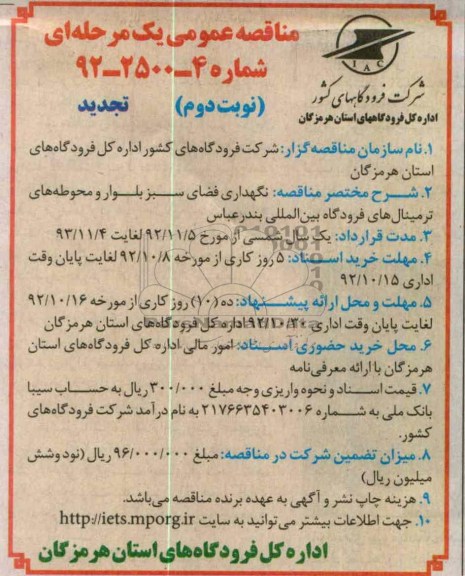 مناقصه عمومی یک مرحله‌ای
شماره ۴-۲۵۰۰-۹۲
(نوبت دوم) تجدید
IAC
شرکت فرودگاههای کشور
اداره کل فرودگاههای استان هرمزگان
۱. نام سازمان مناقصه‌گزار: شرکت فرودگاه‌های کشور اداره کل فرودگاه‌های
استان هرمزگان
۲. شرح مختصر مناقصه: نگهداری فضای سبز بلوار و محوطه‌های
ترمینال‌های فرودگاه بین‌المللی بندرعباس
۳. مدت قرارداد: یک سال شمسی از مورخ ۹۲/۱۱/۵ لغایت ۹۳/۱۱/۴
۴. مهلت خرید اسناد: ۵ روز کاری از مورخه ۹۲/۱۰/۸ لغایت پایان وقت
اداری ۹۲/۱۰/۱۵
۵. مهلت و محل ارائه پیشنهاد: ده (۱۰) روز کاری از مورخه ۹۲/۱۰/۱۶
لغایت پایان وقت اداری ۹۲/۱۰/۳۰ اداره کل فرودگاه‌های استان هرمزگان
۶. محل خرید حضوری اسناد: امور مالی اداره کل فرودگاه‌های استان
هرمزگان با ارائه معرفی‌نامه
۷. قیمت اسناد و نحوه واریزی وجه مبلغ ۳۰۰/۰۰۰ ریال به حساب سیبا
بانک ملی به شماره ۲۱۷۶۶۳۵۴۰۳۰۰۶ به نام درآمد شرکت فرودگاه‌های
کشور.
۸. میزان تضمین شرکت در مناقصه: مبلغ ۹۶/۰۰۰/۰۰۰ ریال (نود وشش
میلیون ریال)
۹. هزینه چاپ نشر و آگهی به عهده برنده مناقصه می‌باشد.
۱۰. جهت اطلاعات بیشتر می‌توانید به سایت http://iets.mporg.ir
اداره کل فرودگاه‌های استان هرمزگان